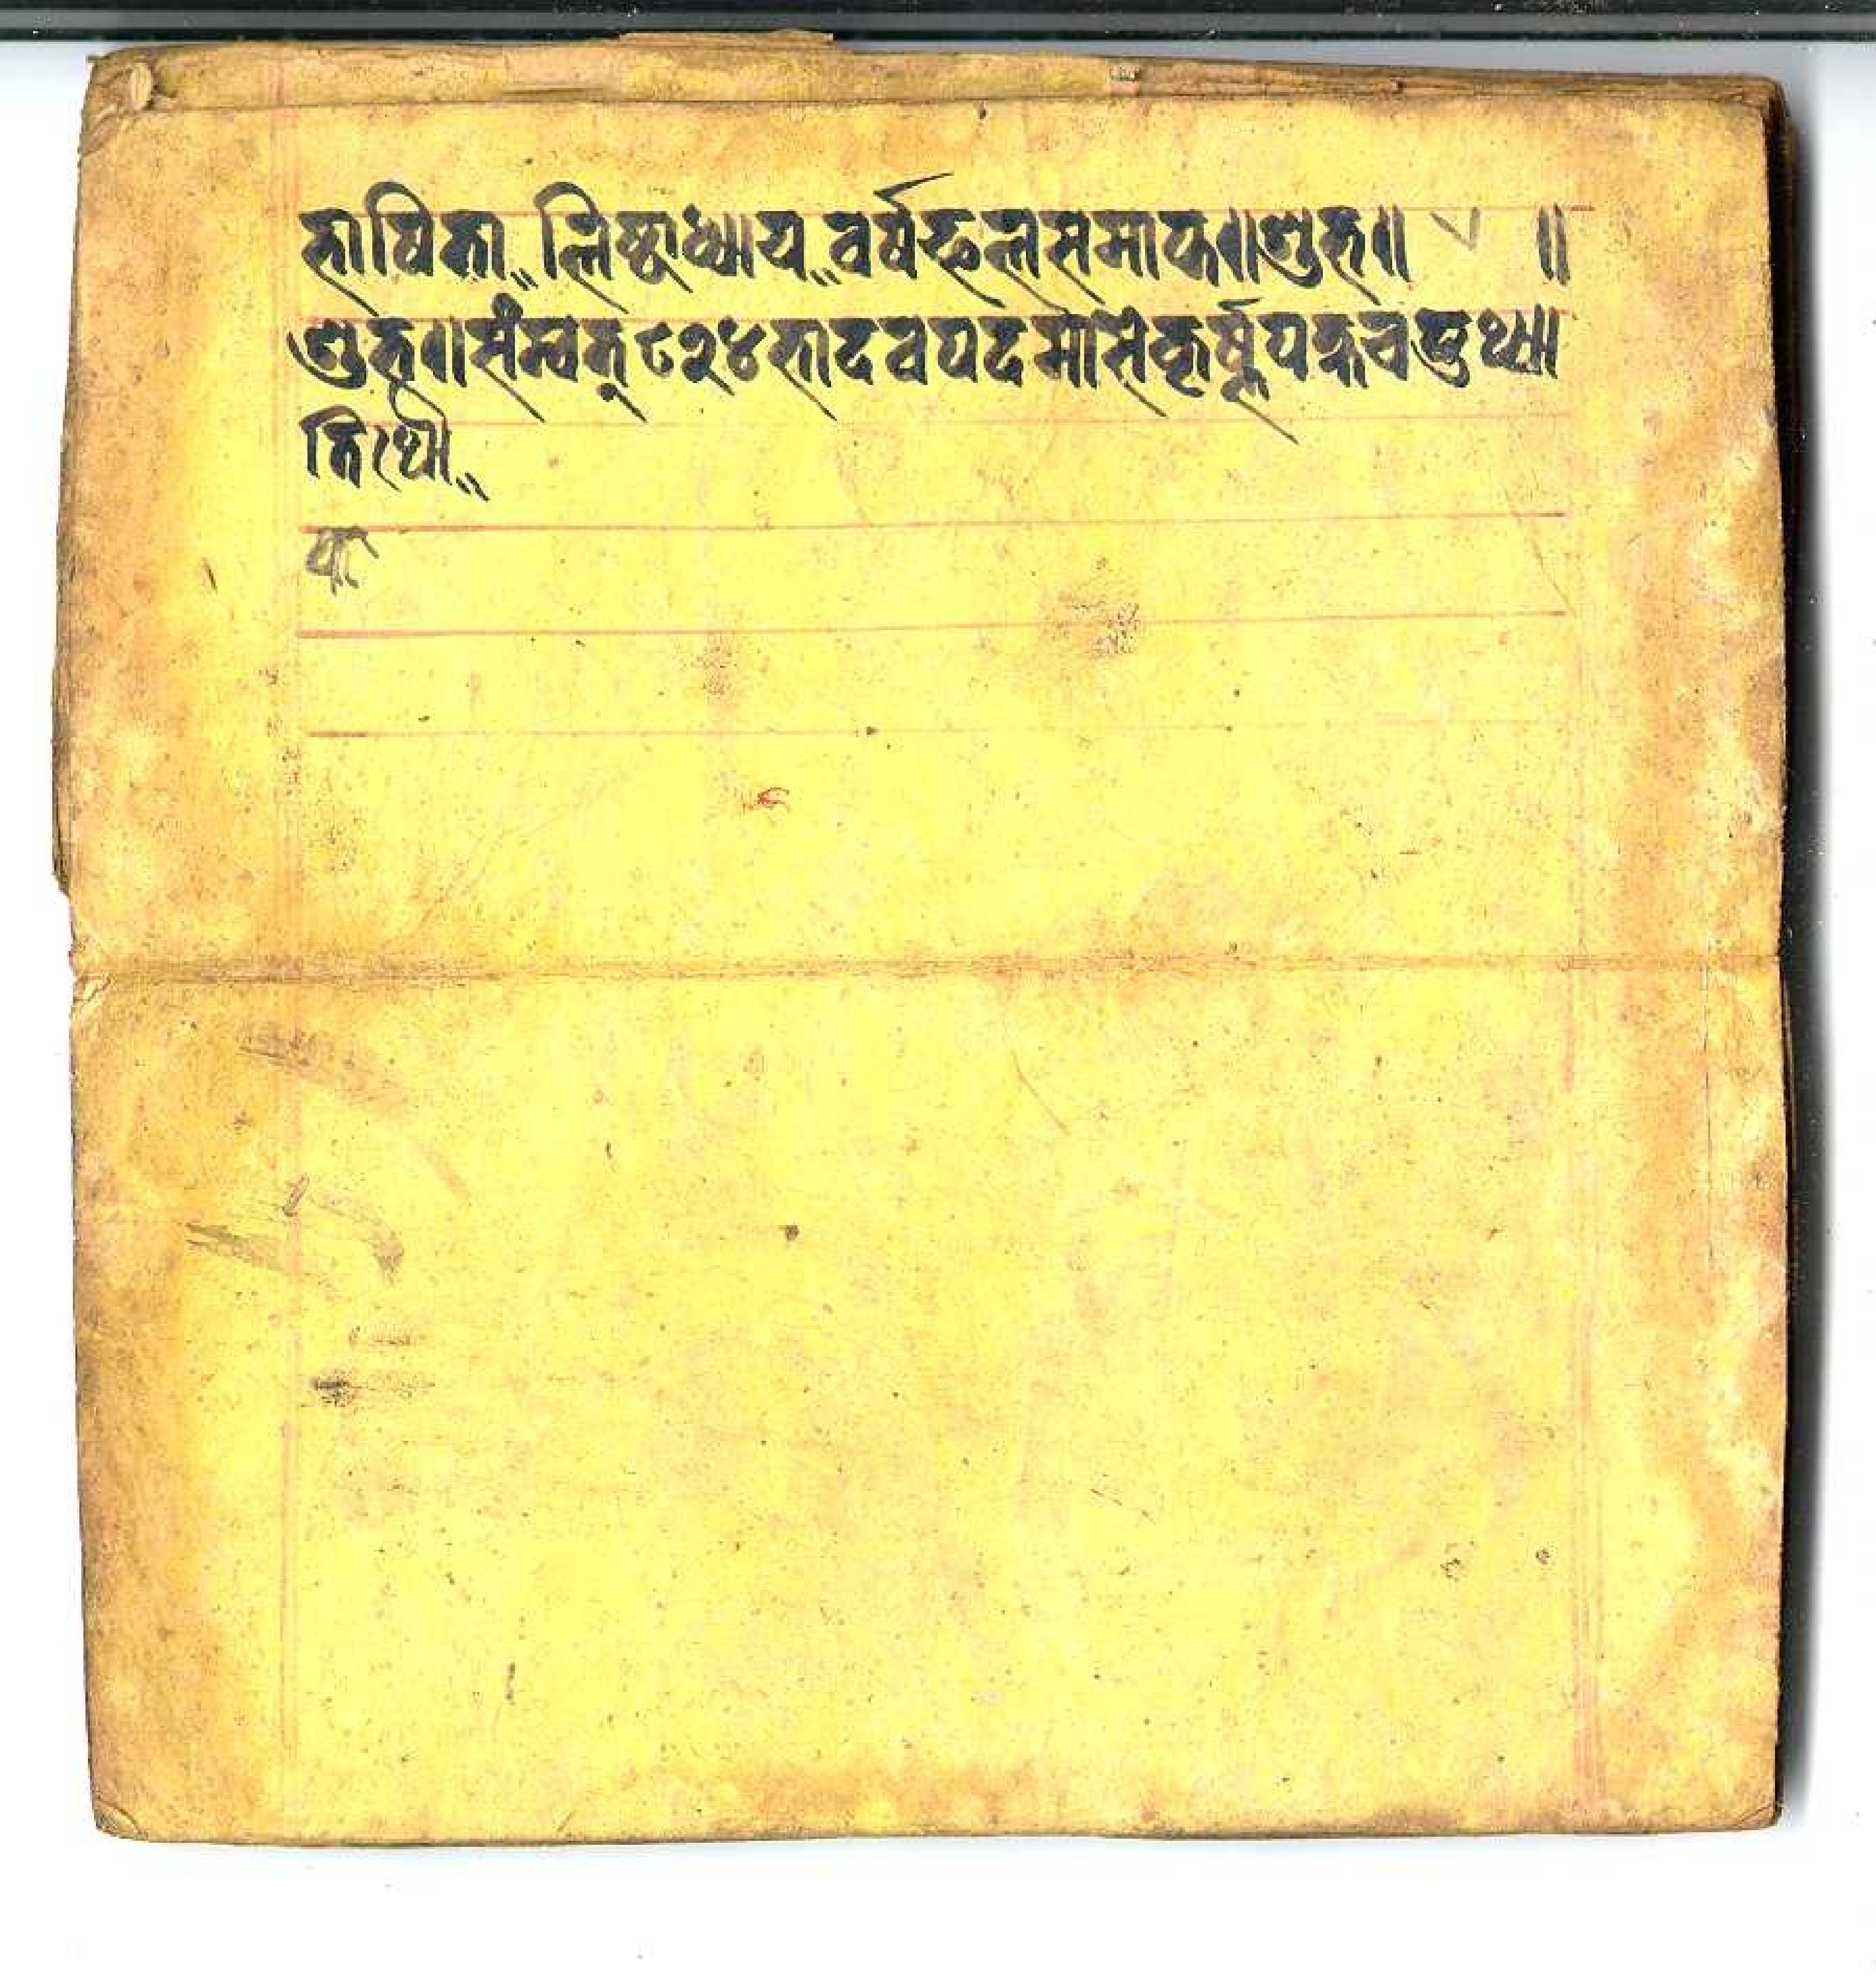 भाषिता ॥ लिष्टाध्याय ॥ वर्षफलसमाप्त ॥ शुभ ॥ ॥
शुभ ॥ सम्वत् ८२४ भादवपदमासे कृर्ष्णपक्ष चतुर्थ्या
तिथौ ॥